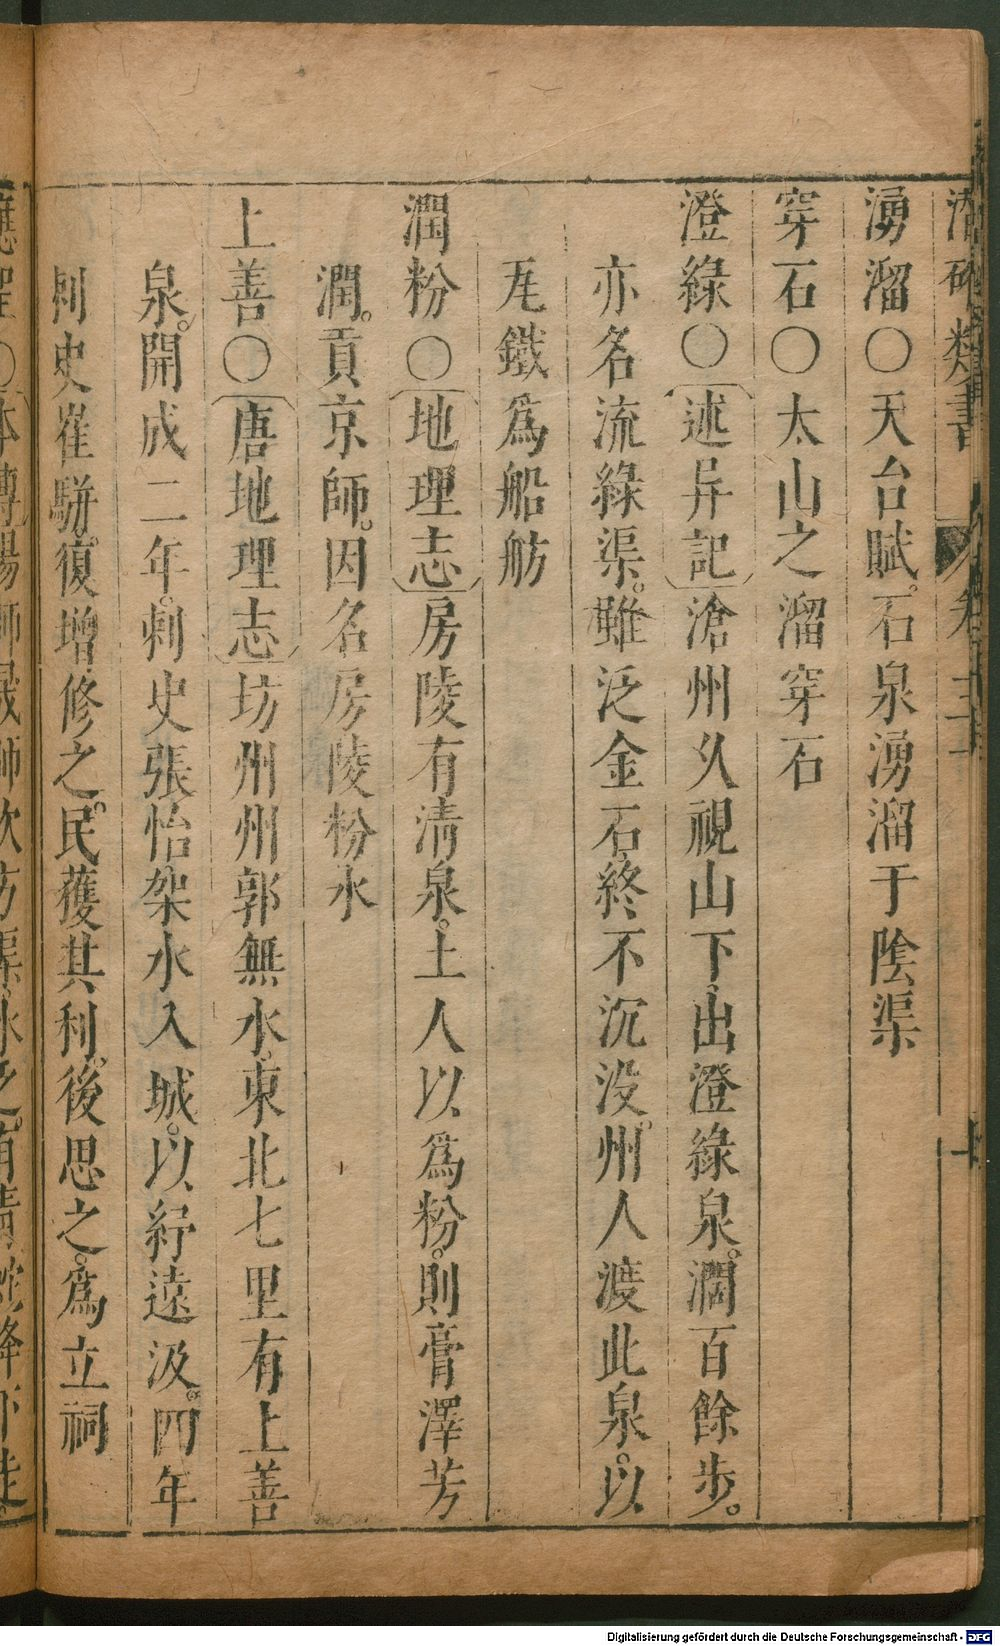 潛確類書 卷三十
湧溜〇天台賦。石泉湧溜于陰渠
穿石〇太山之溜穿石
澄綠〇述异記滄州乆視山下出澄綠泉。濶百餘步。
亦名流綠渠。雖泛金石終不沉没。州人渡此泉。以
瓦鐵爲船舫
潤粉〇地理志房陵有清泉。土人以爲粉。則膏澤芳
潤。貢京師。因名房陵粉水
上善〇唐地理志坊州州郭無水。東北七里有上善
泉。開成二年。刺史張怡架水入城。以紓遠汲。四年
刺史崔駢。復增修之。民獲其利。後思之。爲立祠
Digitalisierung gefördert durch die Deutsche Forschungsgemeinschaft - DFG